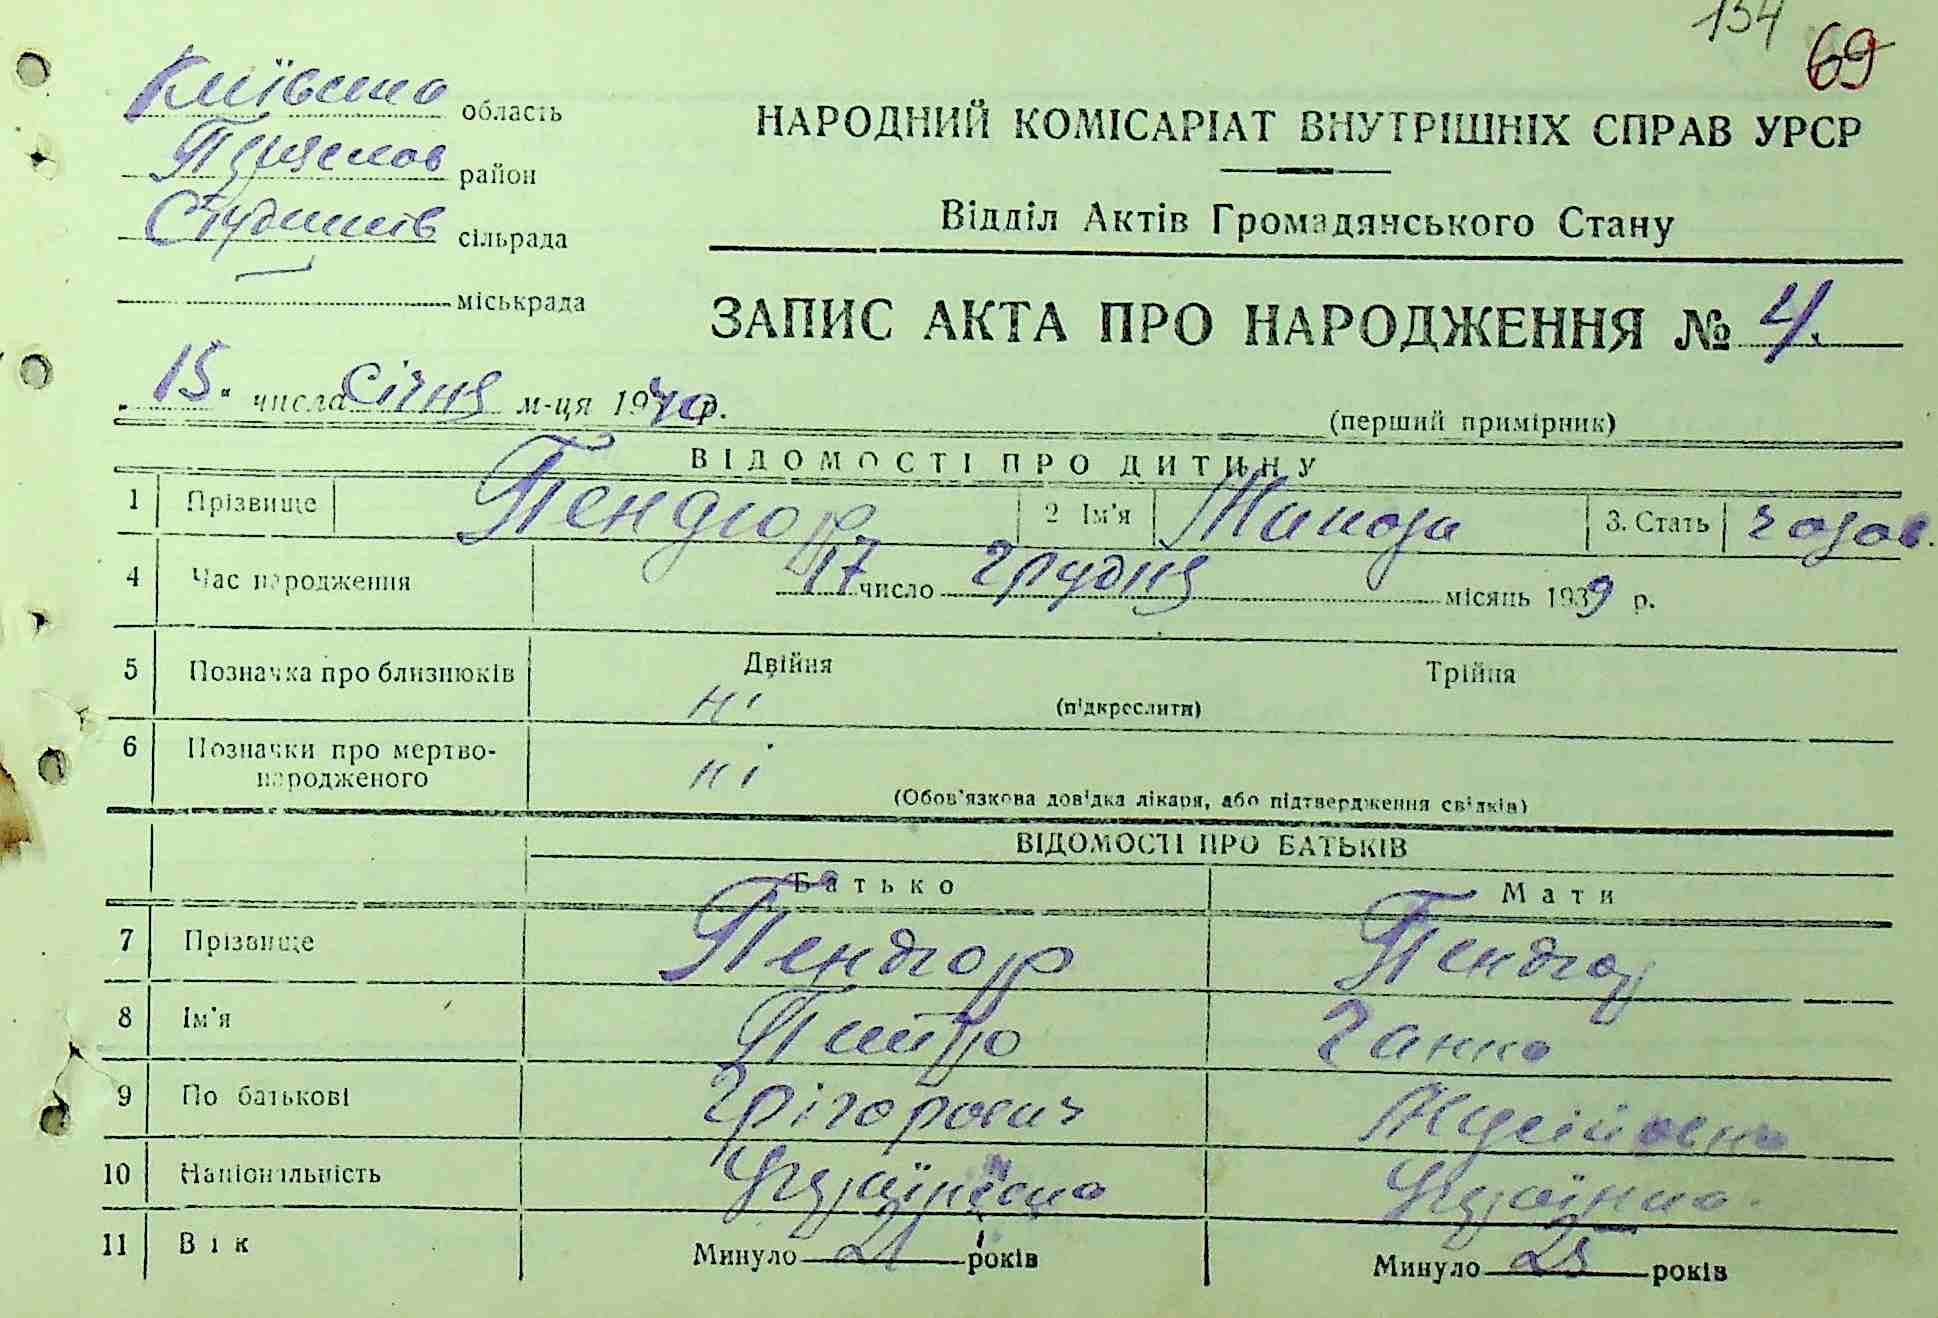 134 69
Київська область
НАРОДНИЙ КОМІСАРІАТ ВНУТРІШНІХ СПРАВ УРСР
район
Відділ Актів Громадянського Стану
сільрада
міськрада
ЗАПИС АКТА ПРО НАРОДЖЕННЯ № 4.
"15" числа Січня м-ця 1940 р.
(перший примірник)
ВІДОМОСТІ ПРО ДИТИНУ
1 Прізвище Пендюр 2 Ім'я Микола 3. Стать чолов.
4 Час народження 17 число Грудня місяць 1939 р.
5 Позначка про близнюків Двійня Трійня
ні (підкреслити)
6 Позначки про мертво-
народженого ні
(Обов'язкова довідка лікаря, або підтвердження свідків)
ВІДОМОСТІ ПРО БАТЬКІВ
Батько Мати
7 Прізвище Пендюр Пендюр
8 Ім'я Ганна
9 По батькові Грігорович
10 Національність Українка
11 Вік Минуло 21 років Минуло 25 років